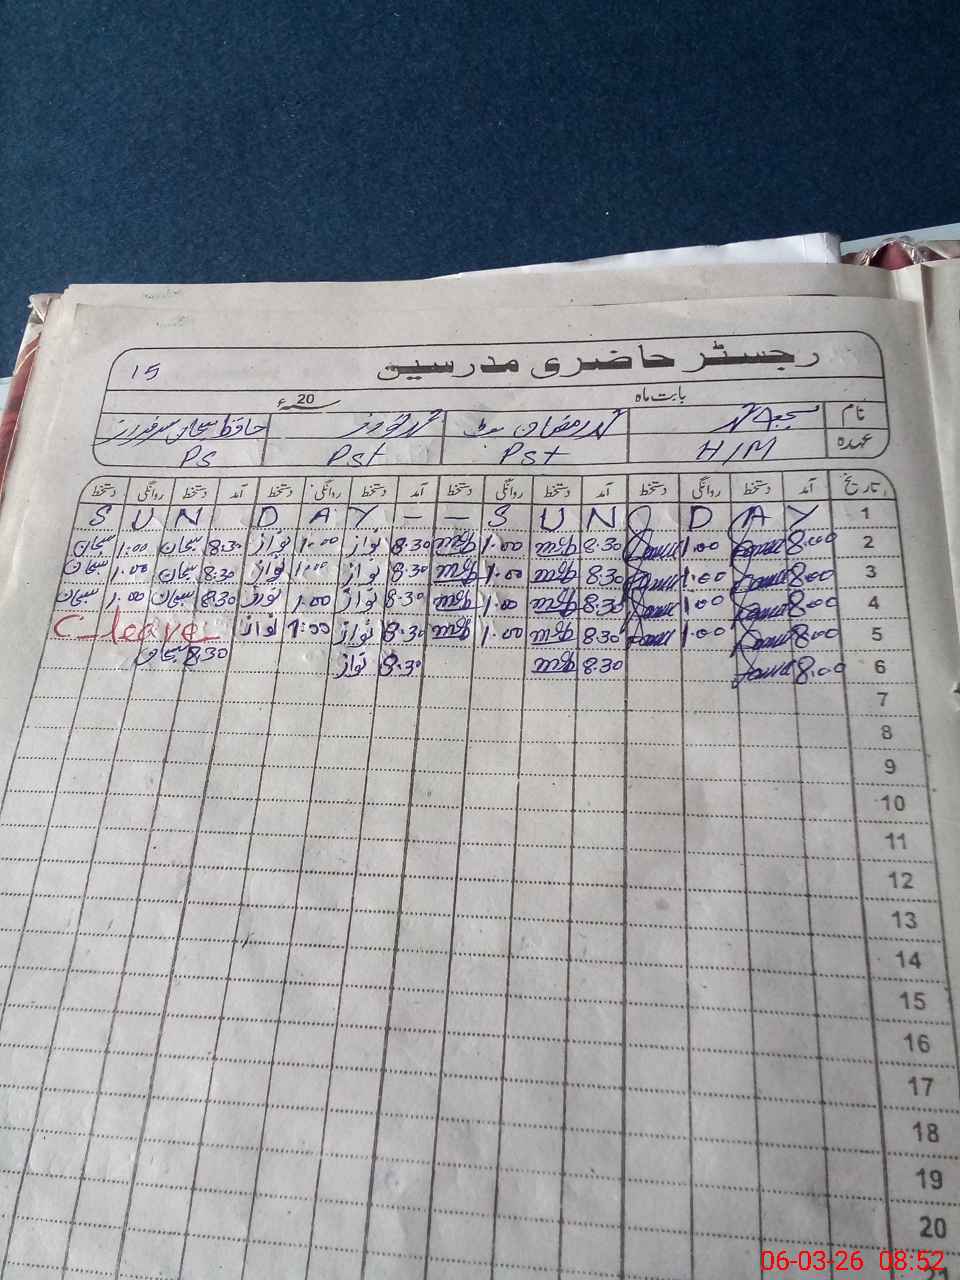 رجسٹر حاضری مدرسین 15
بابت ماہ 20ء
نام محمد رمضان محمد نواز حافظ سبحان سرفراز
عہدہ H/M PST PST PS
تاریخ آمد دستخط روانگی دستخط آمد دستخط روانگی دستخط آمد دستخط روانگی دستخط آمد دستخط روانگی دستخط
S U N D A Y - - S U N D A Y 1
سبحان 1:00 سبحان 8:30 نواز 1:00 نواز 8:30 1:00 8:30 1:00 8:00 2
سبحان 1:00 سبحان 8:30 نواز 1:00 نواز 8:30 1:00 8:30 1:00 8:00 3
سبحان 1:00 سبحان 8:30 نواز 1:00 نواز 8:30 1:00 8:30 1:00 8:00 4
C-leave نواز 1:00 نواز 8:30 1:00 8:30 1:00 8:00 5
سبحان 8:30 نواز 8:30 8:30 8:00 6
7
8
9
10
11
12
13
14
15
16
17
18
19
20
21
06-03-26 08:52